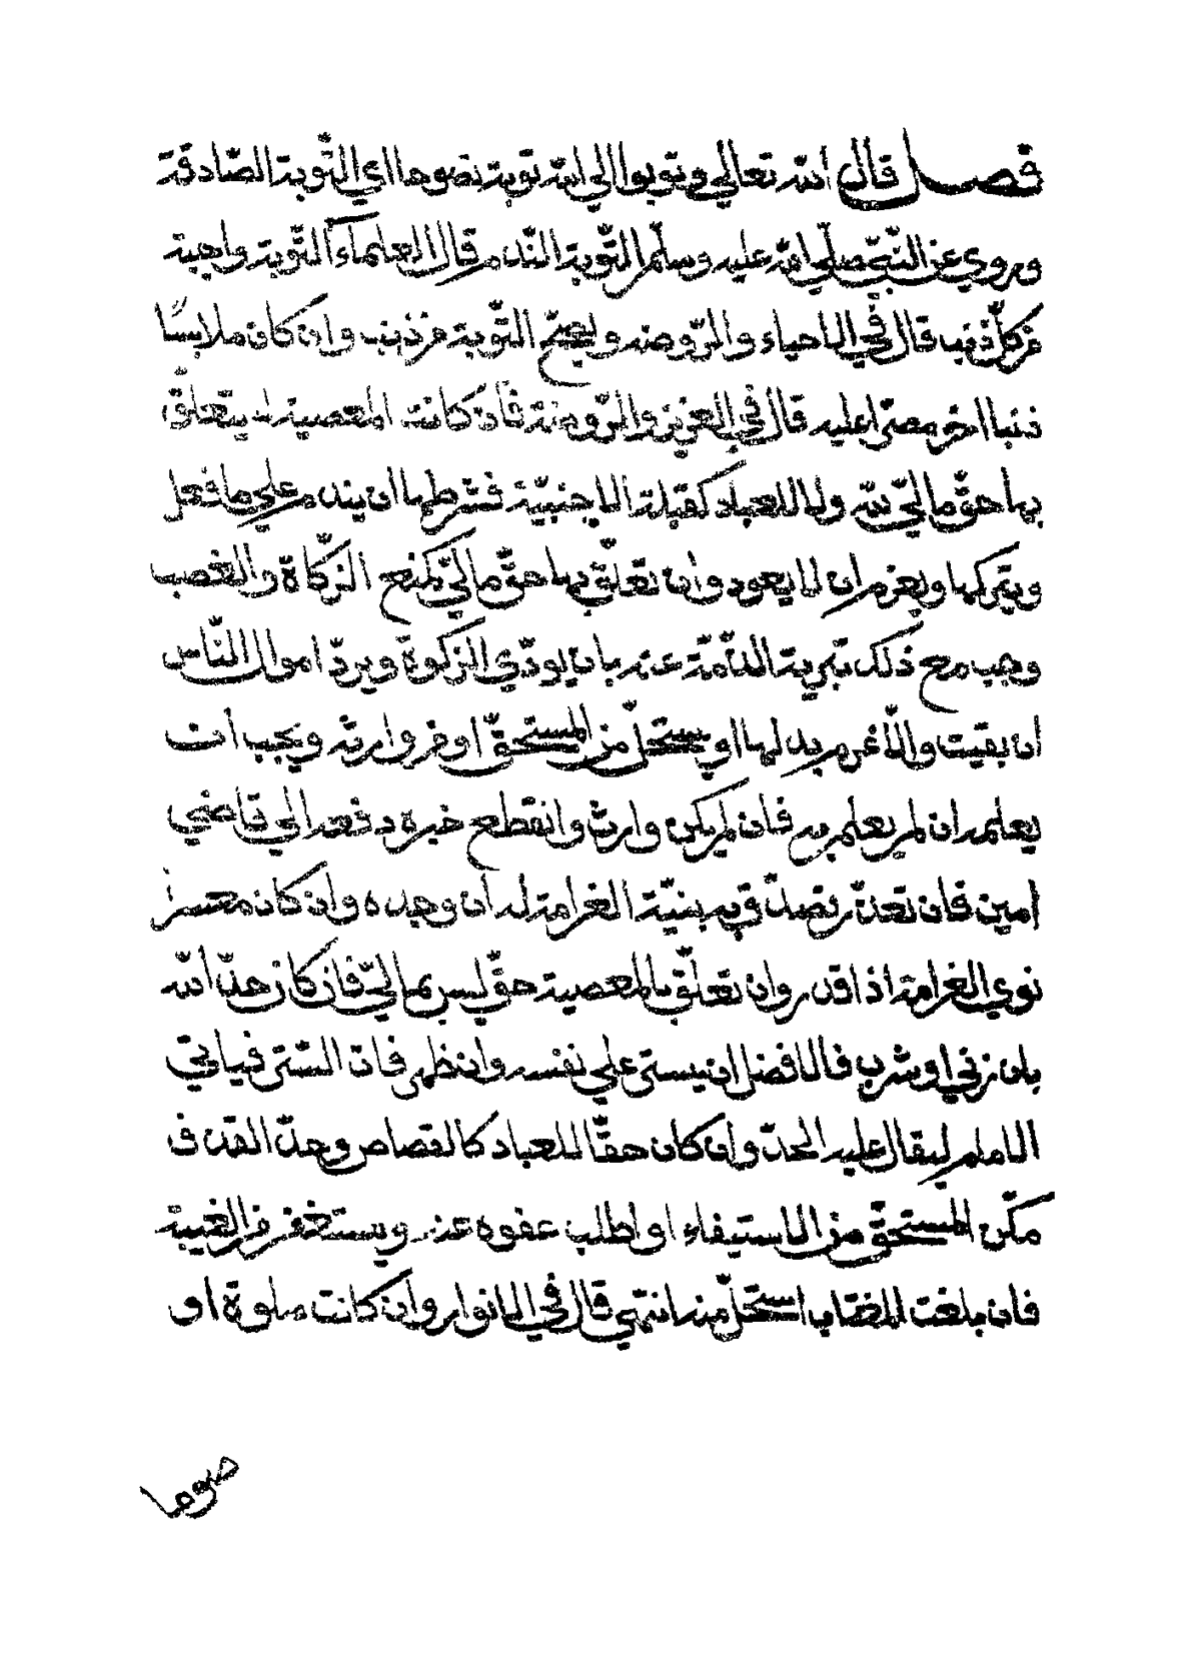 فصل قال الله تعالي وتوبوا الي الله توبة نصوحا اي التّوبة الصّادقة
وروي عن النّبيّ صلّي الله عليه وسلّم التّوبة النّدم قال العلماء التّوبة واجبة
من كلّ ذنب قال في الاحياء والرّوضة ويصحّ التّوبة من ذنب وان كان ملابسًا
ذنبا اخر مصرّا عليه قال في العزيز والرّوضة فان كانت المعصية لا يتعلّق
بها حقّ ماليّ لله ولا للعباد كقبلة الاجنبيّة فشرطها ان يندم علي ما فعل
ويتركها ويعزم ان لا يعود وان تعلّق بها حقّ ماليّ كمنع الزّكاة والغصب
وجب مع ذلك تبرية الذّمّة عنه بان يودّي الزكوة ويردّ اموال النّاس
ان بقيت والّا غرم بدلها او يستحلّ من المستحقّ او من وارثه ويجب أن
يعلمه ان لم يعلم به فان لم يكن وارث وانقطع خبره دفعه الي قاضي
امين فان تعذّر تصدّق به بنيّة الغرامة له ان وجده وان كان معسرا
نوي الغرامة اذا قدر وان تعلّق بالمعصية حقّ ليس بماليّ فان كان حدّ الله
بان زني او شرب فالافضل ان يستر علي نفسه وان ظهر فات السّتر فياتي
الامام ليقال عليه الحدّ وان كان حقّا للعباد كالقصاص وحدّ القذف
مكّن المستحقّ من الاستيفاء او اطلب عفوه عنه ويستغفر من الغيبة
فان بلغت المغتاب استحلّ منه انتهي قال في الانوار وان كانت صلوة او
صوما